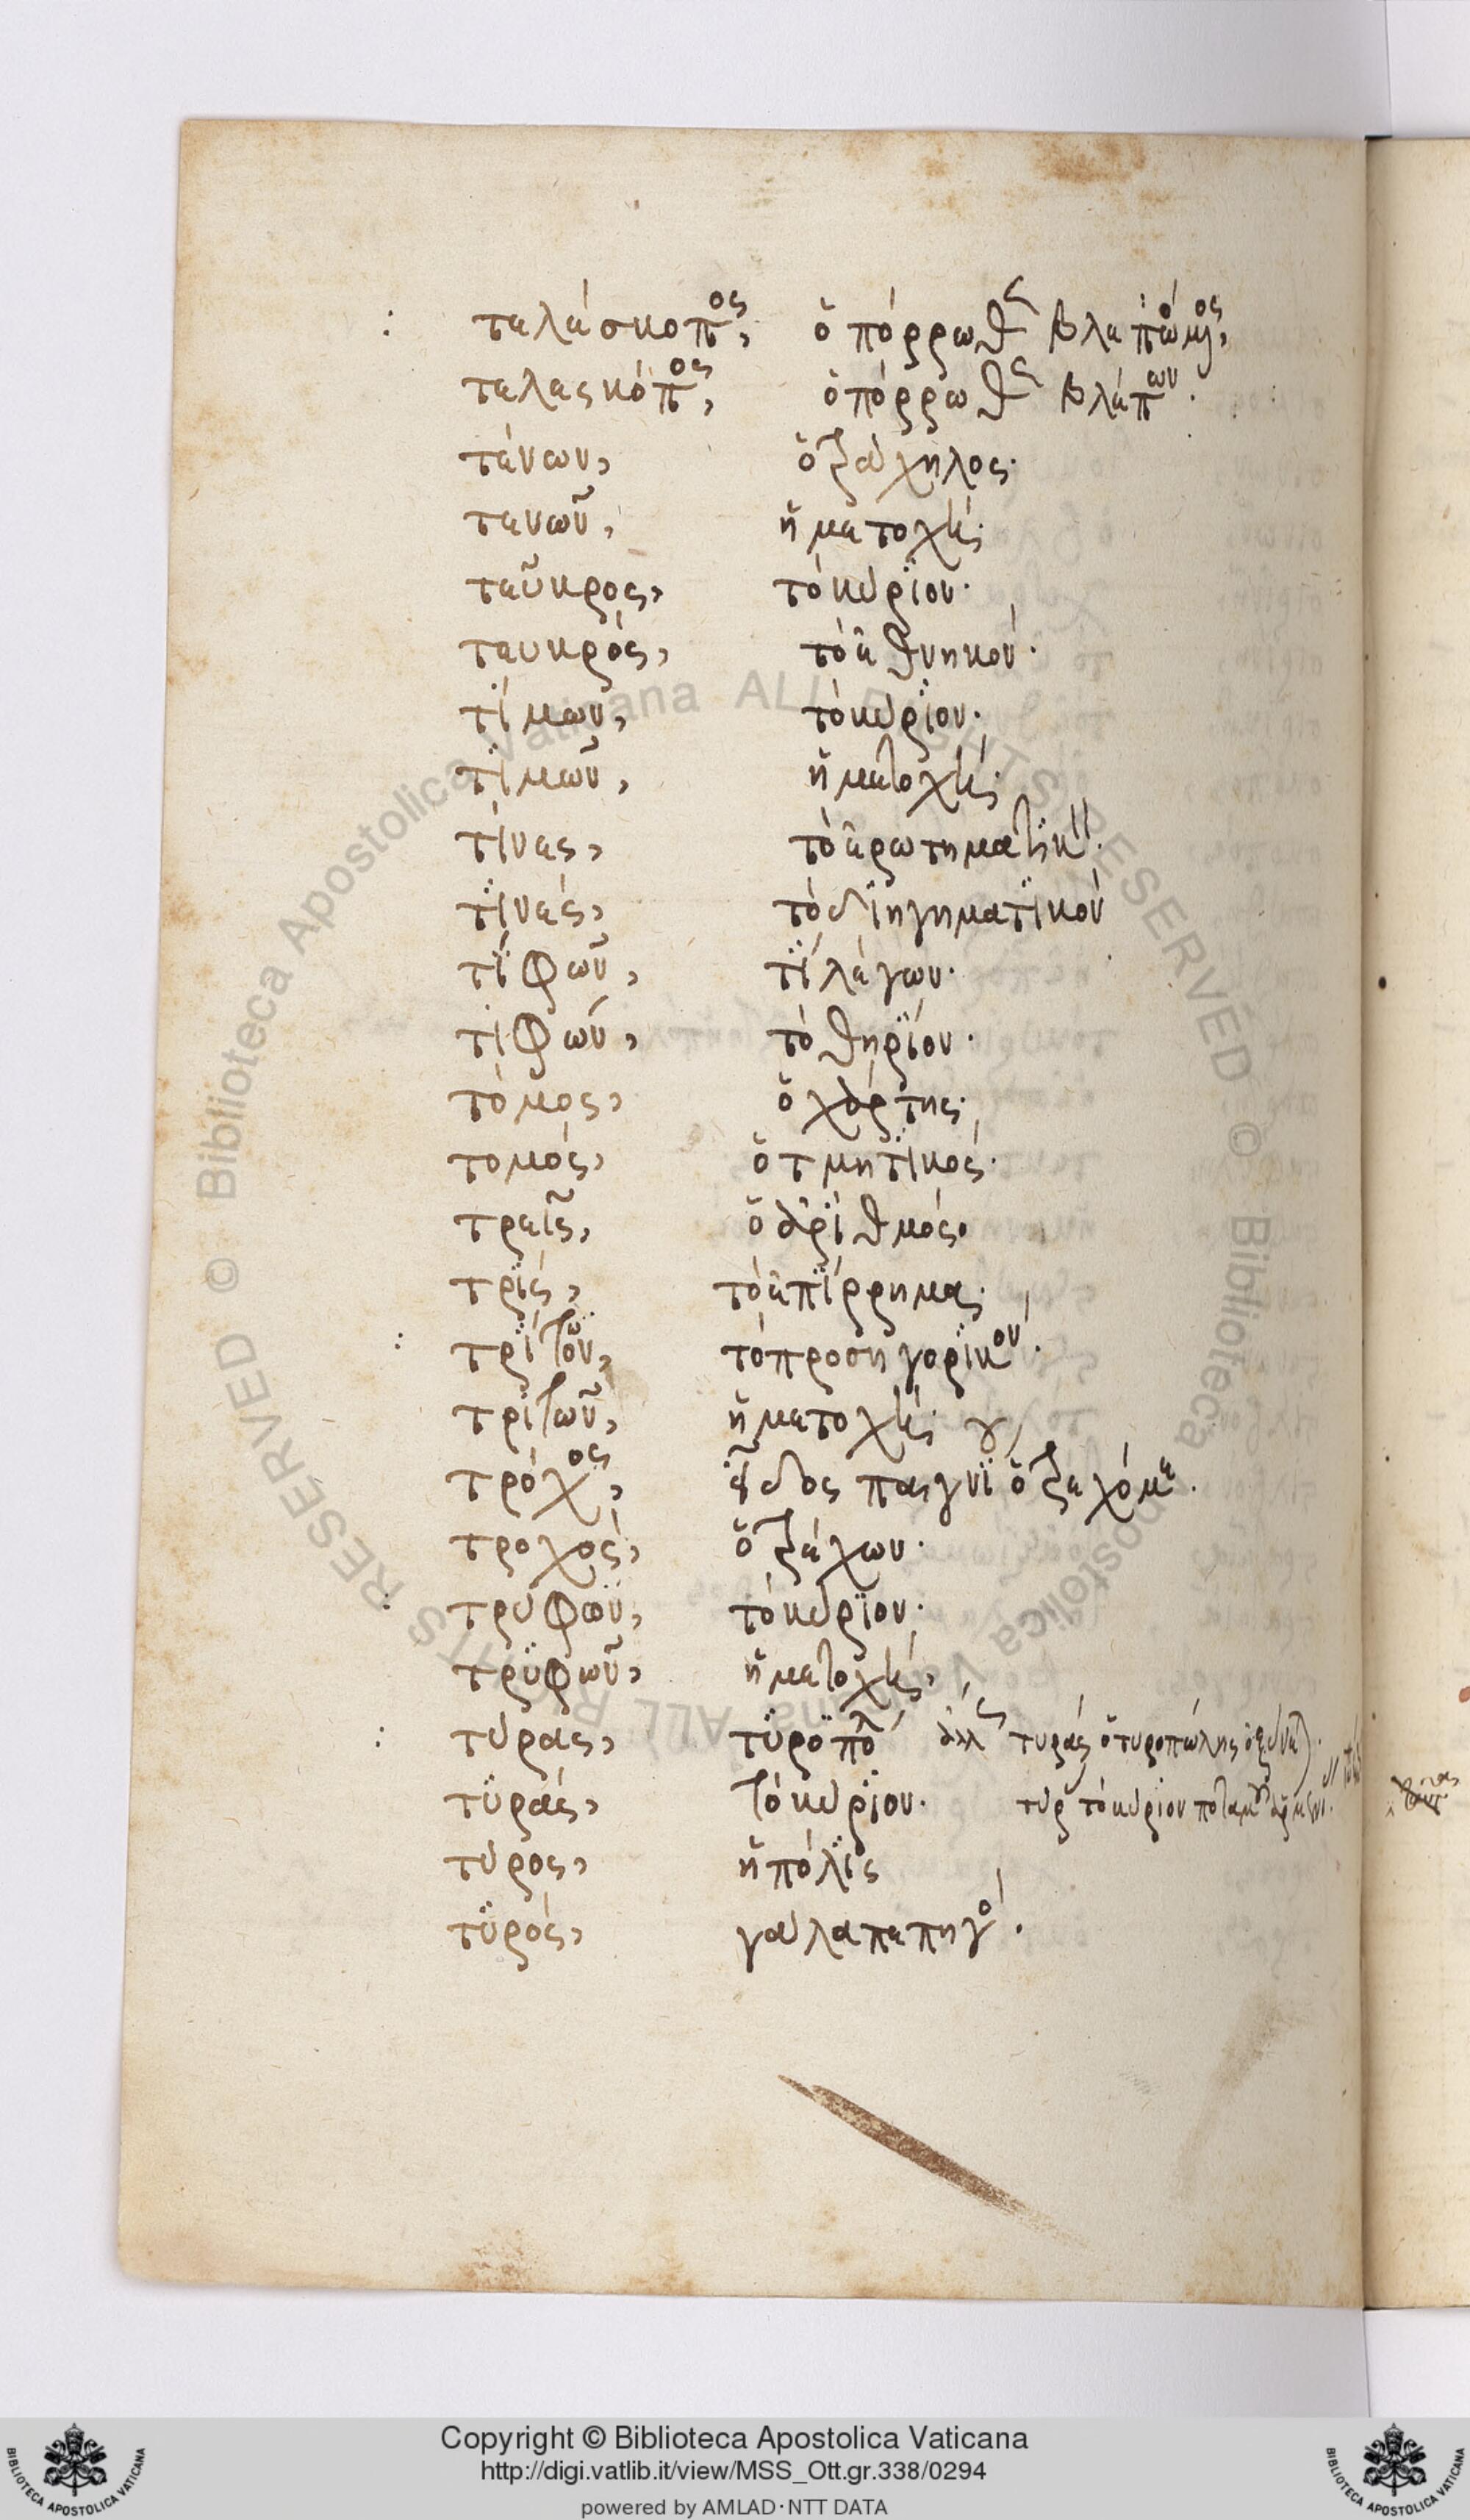 : τελέσκοπος, ὁ πόρρωθεν βλεπόμενος,
τελεσκόπος, ὁ πόρρωθεν βλέπων.
τένων, ὁ τράχηλος.
τενῶν, ἡ μετοχή.
τεῦκρος, τὸ κύριον.
τευκρός, τὸ ἐθνηκόν.
τίμων, τὸ κύριον.
τιμῶν, ἡ μετοχή.
τίνες, τὸ ἐρωτηματικόν.
τινές, τὸ διηγηματικόν
τί φῶν, τί λέγων.
τιφών, τὸ θηρίον.
τόμος, ὁ χάρτης.
τομός, ὁ τμητικός.
τρεῖς, ὁ ἀριθμός.
τρίς, τὸ ἐπίρρημα.
: τρίτον, τὸ προσηγορικόν.
τριτῶν, ἡ μετοχή.
τρόχος, ὁ τρεχόμε.
τροχός, ὁ τρέχων.
: τρύφων, τὸ κύριον.
τρυφῶν, ἡ μετοχή,
: τύρας, τυροπολ τυράς ὁ τυροπώλης
τυράς, τὸ κύριον. τύρ τὸ κύριον ποταμοῦ
τύρος, ἡ πόλις
τυρός, γάλα πεπηγό.
Copyright © Biblioteca Apostolica Vaticana
http://digi.vatlib.it/view/MSS_Ott.gr.338/0294
powered by AMLAD·NTT DATA